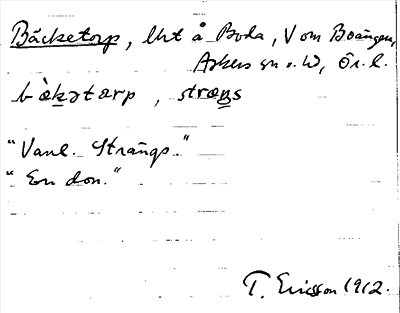 Bäcketorp, lht å Boda, V om Boängen,
Askers sn o. hd, Ör. l.
bàkətɑrp, stræŋs
"Vanl. Strängs."
"En don."
T. Ericsson 1912.